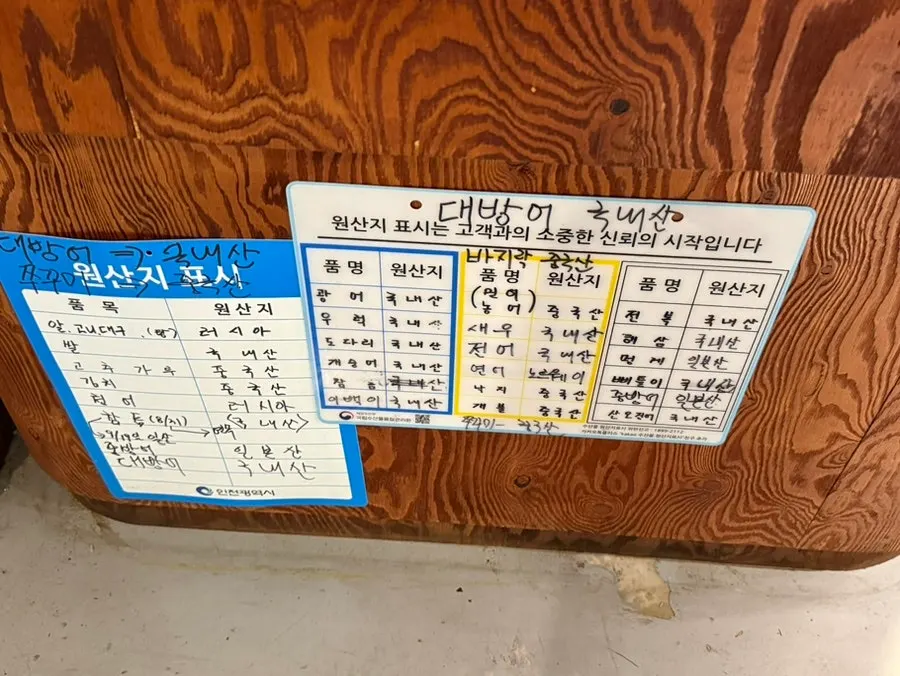 대방어 ⇒ 국내산
원산지 표시
품목 원산지
알.고니대구 러시아
쌀 국내산
고추가루 중국산
김치 중국산
청어 러시아
참돔 일본산
중방어 일본산
대방어 국내산
인천광역시
대방어 국내산
원산지 표시는 고객과의 소중한 신뢰의 시작입니다
품명 원산지
광어 국내산
우럭 국내산
도다리 국내산
개숭어 국내산
참돔 국내산
국내산
바지락 중국산
품명 원산지
(민어)
농어 중국산
새우 국내산
전어 국내산
연어 노르웨이
낙지 중국산
개불 중국산
쭈꾸미
품명 원산지
전복 국내산
해삼 국내산
멍게 일본산
삐뚤이 국내산
중방어 일본산
산오징어 국내산
국립수산물품질관리원
수산물 원산지표시 위반신고 : 1899-2112